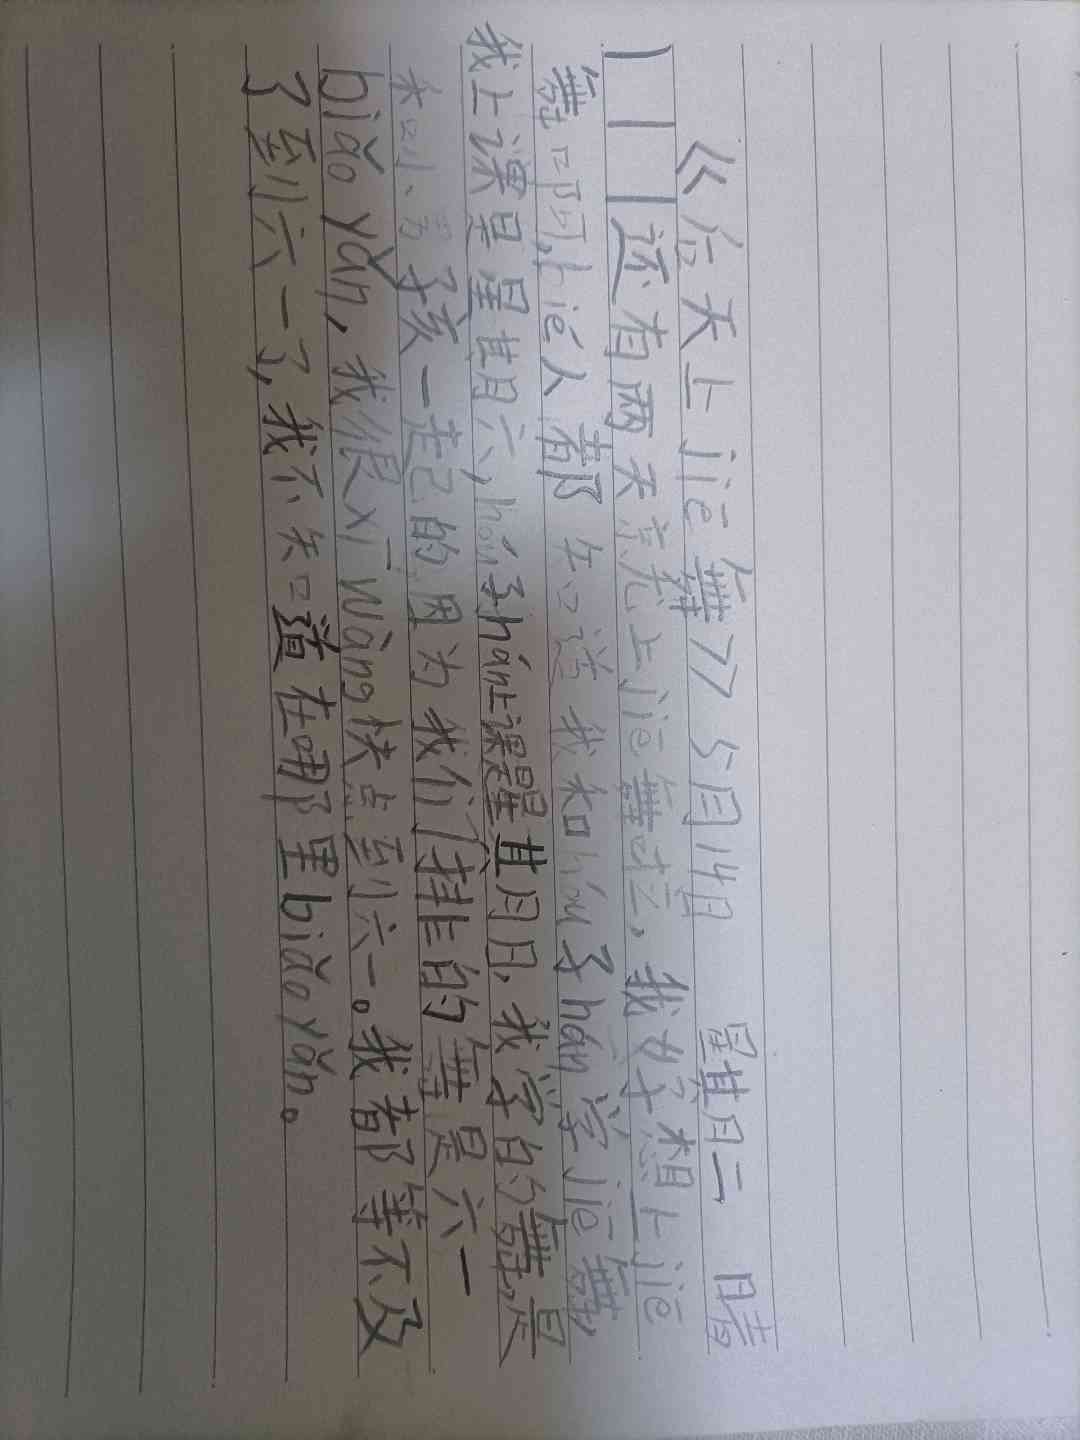 《今天上jiē舞》 5月14日 星期二 晴
还有两天就上jiē舞啦,我好想上jiē
舞啊,bié人都知道我和hóu子hán学jiē舞,
我上课是星期六,hóu子hán上课是星期日,我学的舞是
和小男孩一起的因为我们排的舞是六一
biǎo yǎn,我很xī wàng快点到六一。我都等不及
了到六一了,我不知道在哪里biǎo yǎn。